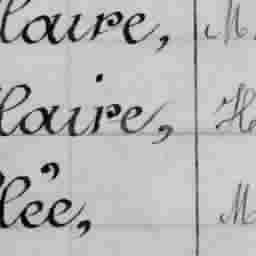 laire, M.
laire, H
lée, M